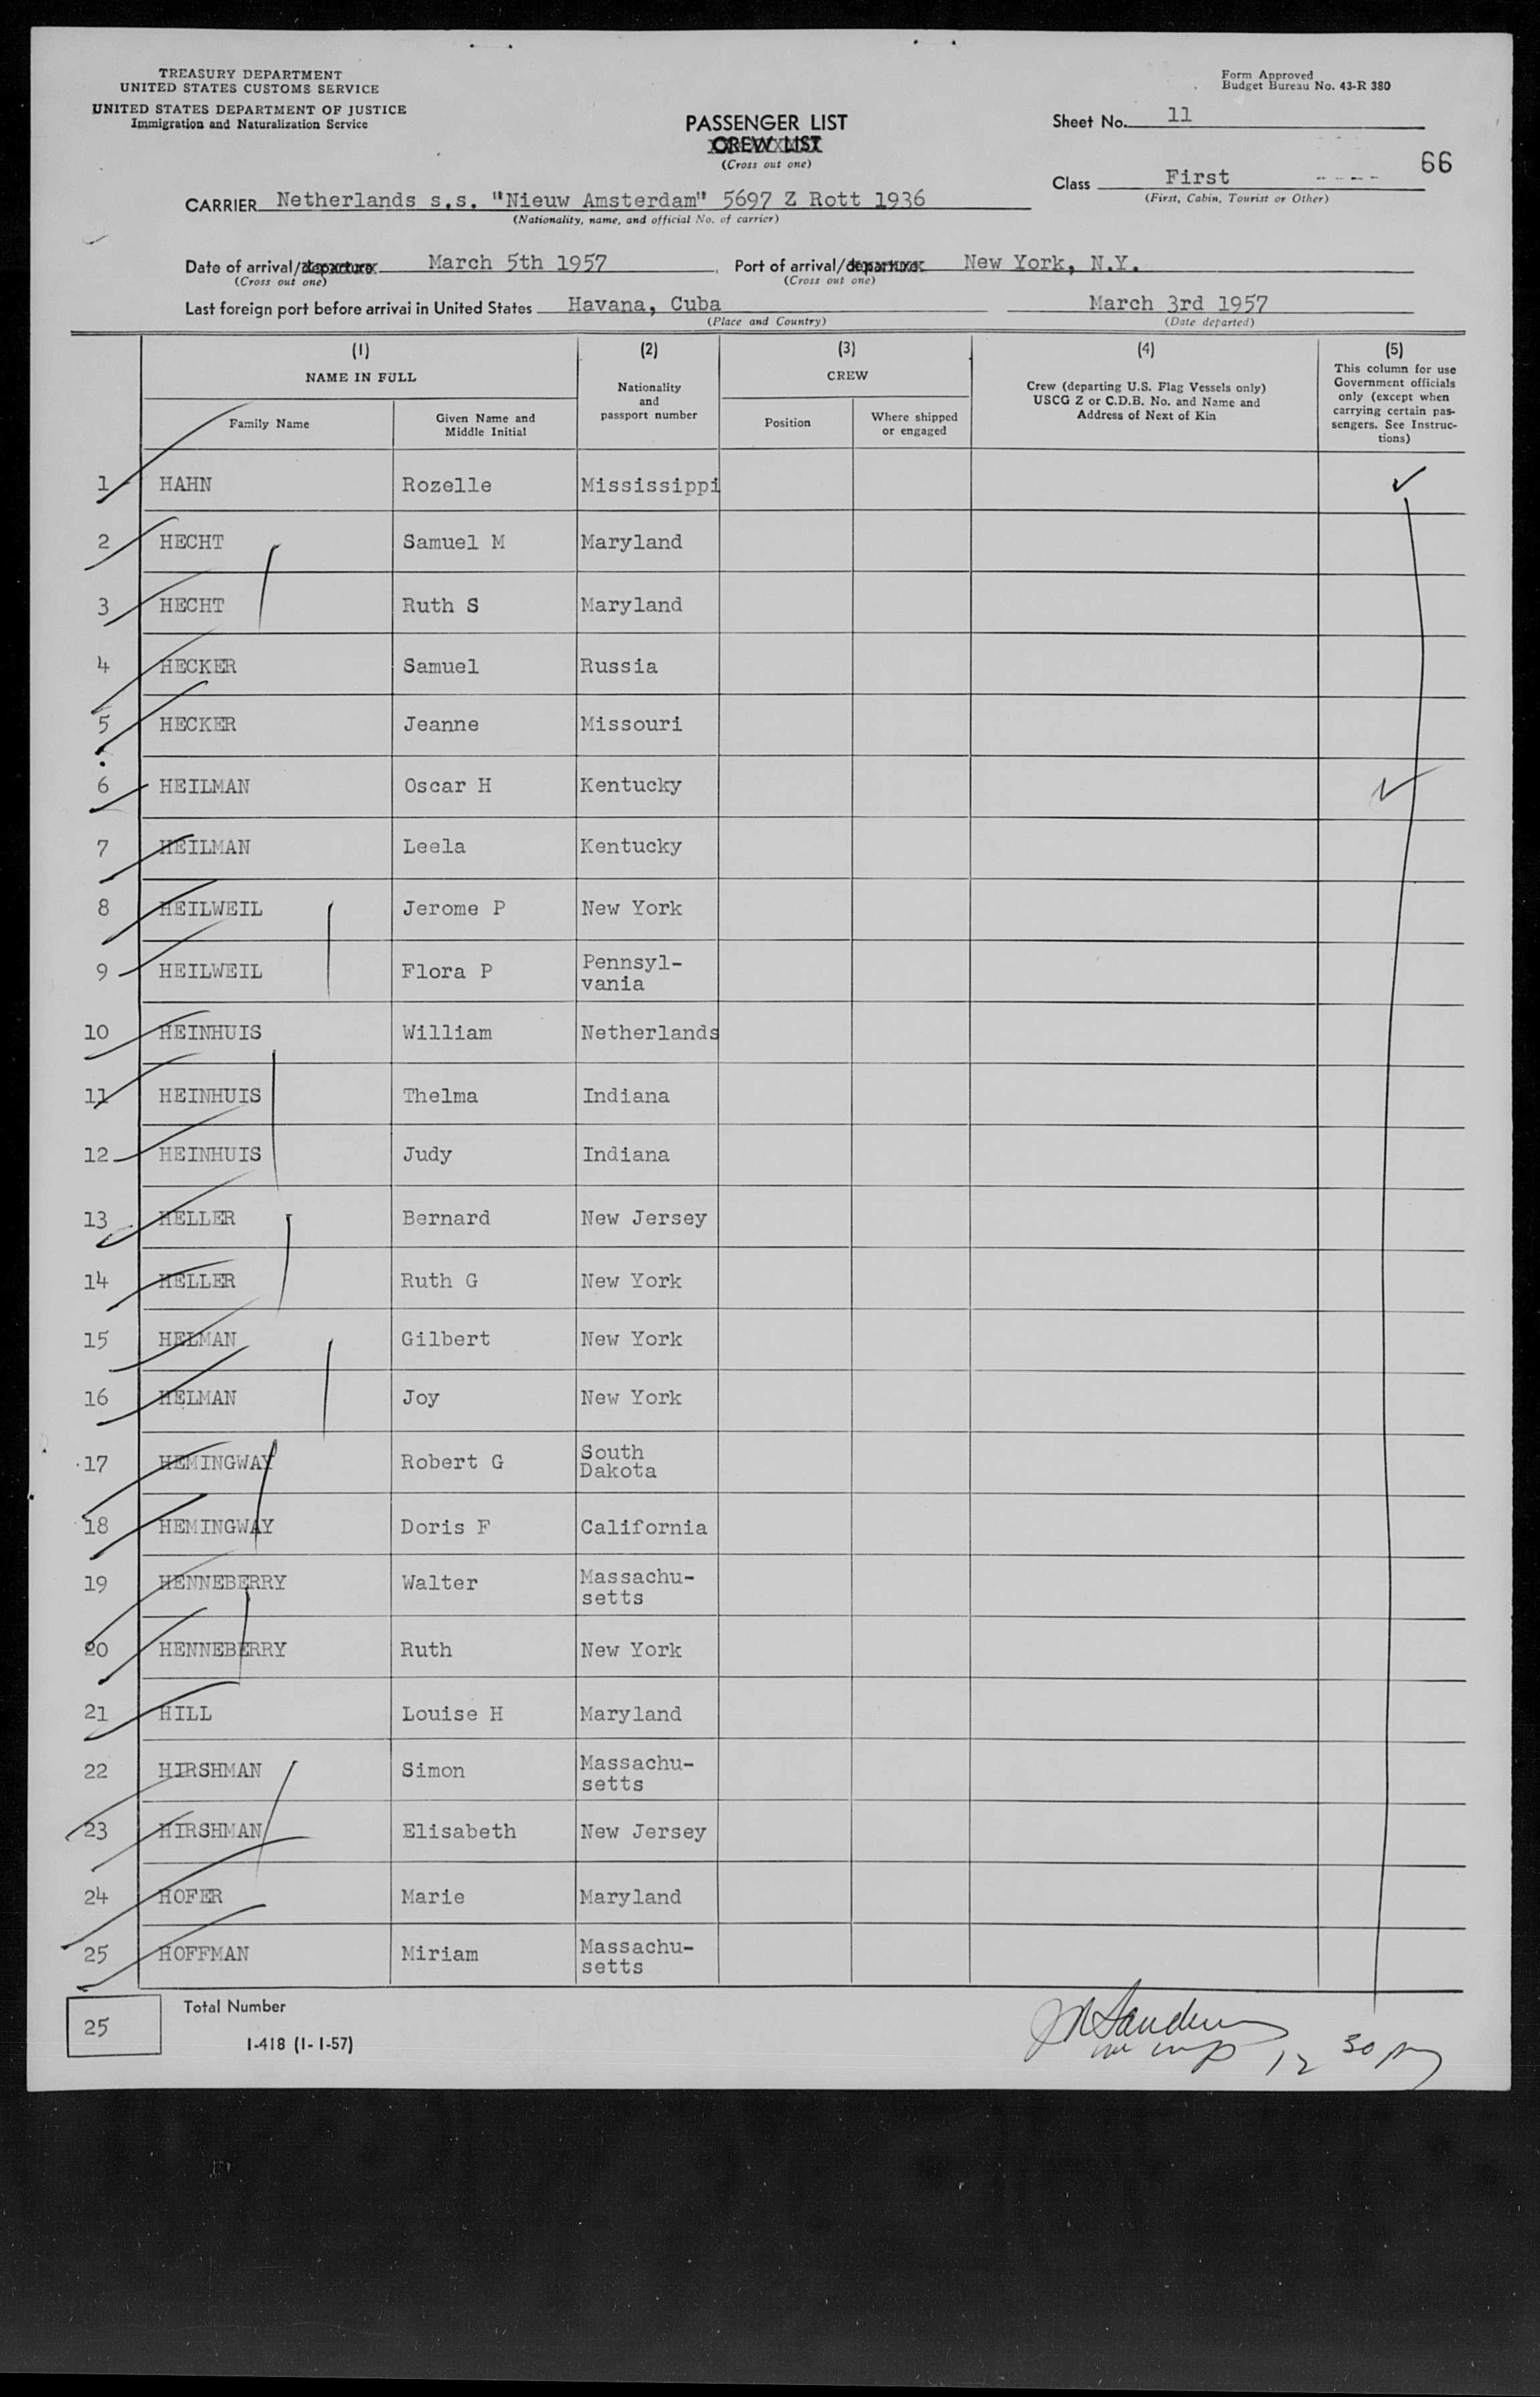 TREASURY DEPARTMENT
UNITED STATES CUSTOMS SERVICE
UNITED STATES DEPARTMENT OF JUSTICE
Immigration and Naturalization Service
Form Approved
Budget Bureau No. 43-R 380
PASSENGER LIST
CREW LIST
(Cross out one)
Sheet No. 11
66
Class First
(First, Cabin, Tourist or Other)
CARRIER Netherlands s.s. "Nieuw Amsterdam" 5697 Z Rott 1936
(Nationality, name, and official No. of carrier)
Date of arrival/departure March 5th 1957, Port of arrival/departure New York, N.Y.
(Cross out one) (Cross out one)
Last foreign port before arrival in United States Havana, Cuba March 3rd 1957
(Place and Country) (Date departed)
(1) (2) (3) (4) (5)
NAME IN FULL
Family Name
Given Name and
Middle Initial
Nationality
and
passport number
CREW
Position
Where shipped
or engaged
Crew (departing U.S. Flag Vessels only)
USCG Z or C.D.B. No. and Name and
Address of Next of Kin
This column for use
Government officials
only (except when
carrying certain pas-
sengers. See Instruc-
tions)
1 HAHN Rozelle Mississippi
2 HECHT Samuel M Maryland
3 HECHT Ruth S Maryland
4 HECKER Samuel Russia
5 HECKER Jeanne Missouri
6 HEILMAN Oscar H Kentucky
7 HEILMAN Leela Kentucky
8 HEILWEIL Jerome P New York
9 HEILWEIL Flora P Pennsyl-
vania
10 HEINHUIS William Netherlands
11 HEINHUIS Thelma Indiana
12 HEINHUIS Judy Indiana
13 HELLER Bernard New Jersey
14 HELLER Ruth G New York
15 HELMAN Gilbert New York
16 HELMAN Joy New York
17 HEMINGWAY Robert G South
Dakota
18 HEMINGWAY Doris F California
19 HENNEBERRY Walter Massachu-
setts
20 HENNEBERRY Ruth New York
21 HILL Louise H Maryland
22 HIRSHMAN Simon Massachu-
setts
23 HIRSHMAN Elisabeth New Jersey
24 HOFER Marie Maryland
25 HOFFMAN Miriam Massachu-
setts
25 Total Number
I-418 (1-1-57)
12 30 pm